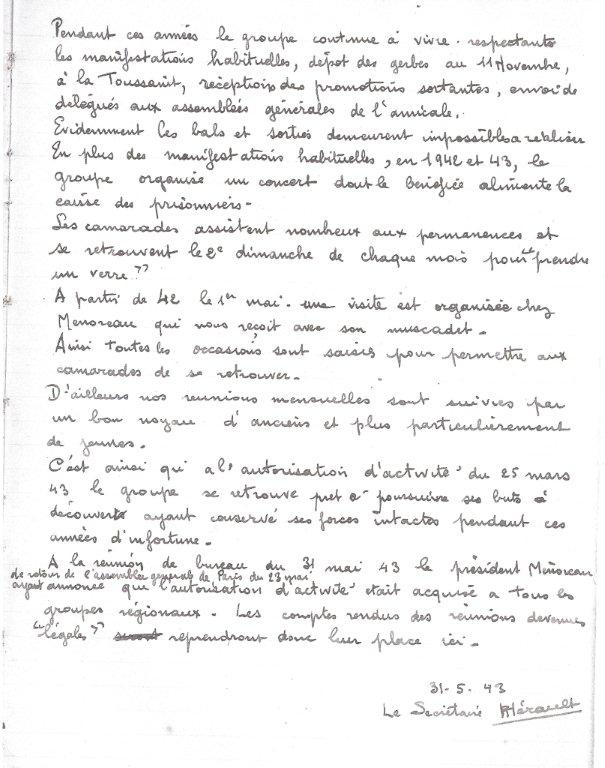 Pendant ces années le groupe continue à vivre. respectants
les manifestations habituelles, dépot des gerbes au 11 Novembre,
à la Toussaint, réceptions des promotions sortantes, envoi de
délégués aux assemblées générales de l'amicale.
Evidemment les bals et sorties demeurent impossibles a réaliser
En plus des manifestations habituelles, en 1942 et 43, le
groupe organise un concert dont le bénéfice alimente la
caisse des prisonniers.
Les camarades assistent nombreux aux permanences et
se retrouvent le 2e dimanche de chaque mois pour "prendre
un verre"
A partir de 42 le 1er mai. une visite est organisée chez
Menoreau qui nous reçoit avec son muscadet.
Ainsi toutes les occasions sont saisies pour permettre aux
camarades de se retrouver.
D'ailleurs nos reunions mensuelles sont suivies par
un bon noyau d'anciens et plus particulièrement
de jeunes.
C'est ainsi qu'à l'autorisation d'activité du 25 mars
43 le groupe se retrouve pret à poursuivre ses buts à
découverts ayant conservé ses forces intactes pendant ces
années d'infortune.
A la réunion de bureau du 31 mai 43 le président Menoreau
de retour de l'assemblée generale de Paris du 23 mai
ayant annoncé que l'autorisation d'activité etait acquise a tous les
groupes régionaux. Les comptes rendus des réunions devenues
"légales" reprendront donc leur place ici.
31-5-43
Le Secrétaire Hérault